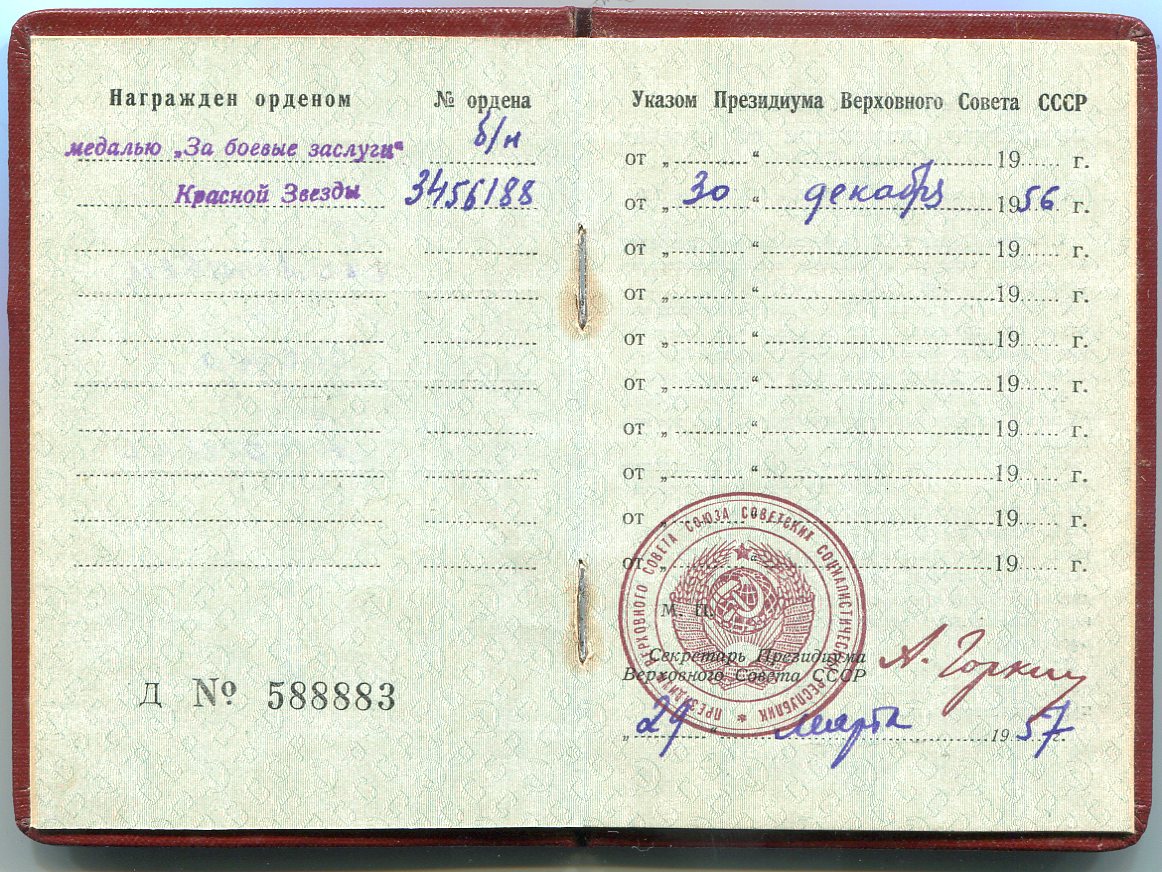 Награжден орденом № ордена
медалью „За боевые заслуги“ б/н
Красной Звезды 3456188
Д № 588883
Указом Президиума Верховного Совета СССР
от „ “ 19 г.
от „ 30 “ декабря 1956 г.
от „ “ 19 г.
от „ “ 19 г.
от „ “ 19 г.
от „ “ 19 г.
от „ “ 19 г.
от „ “ 19 г.
от „ “ 19 г.
от „ “ 19 г.
ПРЕЗИДИУМ ВЕРХОВНОГО СОВЕТА СОЮЗА СОВЕТСКИХ СОЦИАЛИСТИЧЕСКИХ РЕСПУБЛИК
М. П.
Секретарь Президиума
Верховного Совета СССР
А. Горкин
„ 29 “ марта 1957 г.